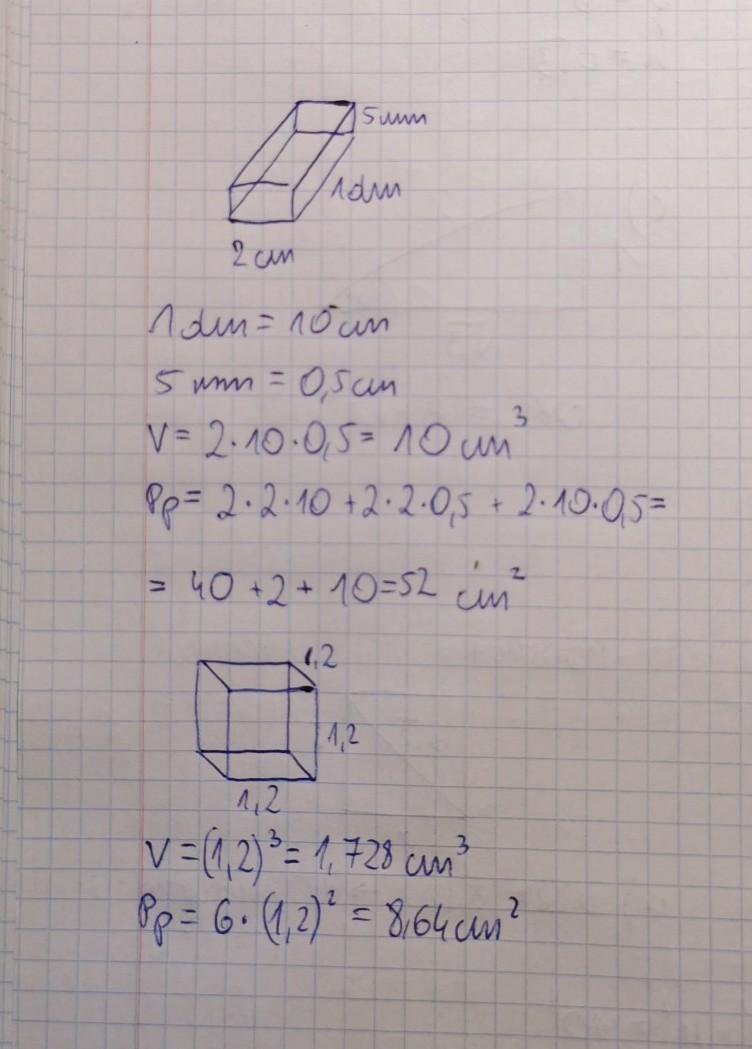 5mm
1dm
2 cm
1 dm = 10 cm
5 mm = 0,5 cm
V = 2·10·0,5 = 10 cm³
Pp = 2·2·10 + 2·2·0,5 + 2·10·0,5 =
= 40 + 2 + 10 = 52 cm²
1,2
1,2
1,2
V = (1,2)³ = 1,728 cm³
Pp = 6·(1,2)² = 8,64 cm²